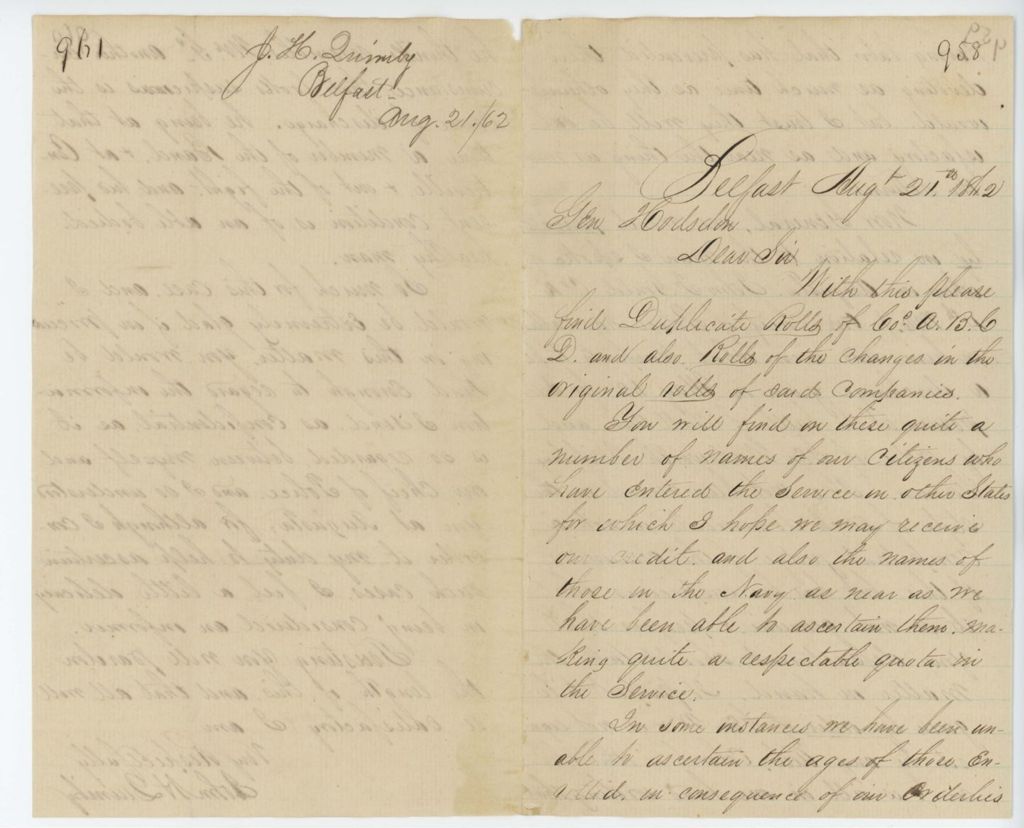 961
J. H. Quimby
Belfast
Aug. 21./62
958
Belfast Augt 21.th 1862
Gen Hodsdon
Dear Sir
With this please
find. Duplicate Rolls of Cos. A. B. C
D. and also Rolls of the changes in the
original rolls of said Companies.
You will find in these quite a
number of names of our Citizens who
have entered the Service in other States
for which I hope we may receive
our credit. and also the names of
those in the Navy as near as we
have been able to ascertain them. ma-
king quite a respectable quota in
the Service.
In some instances we have been un-
able to ascertain the ages of those En-
in consequence of our Orderlies